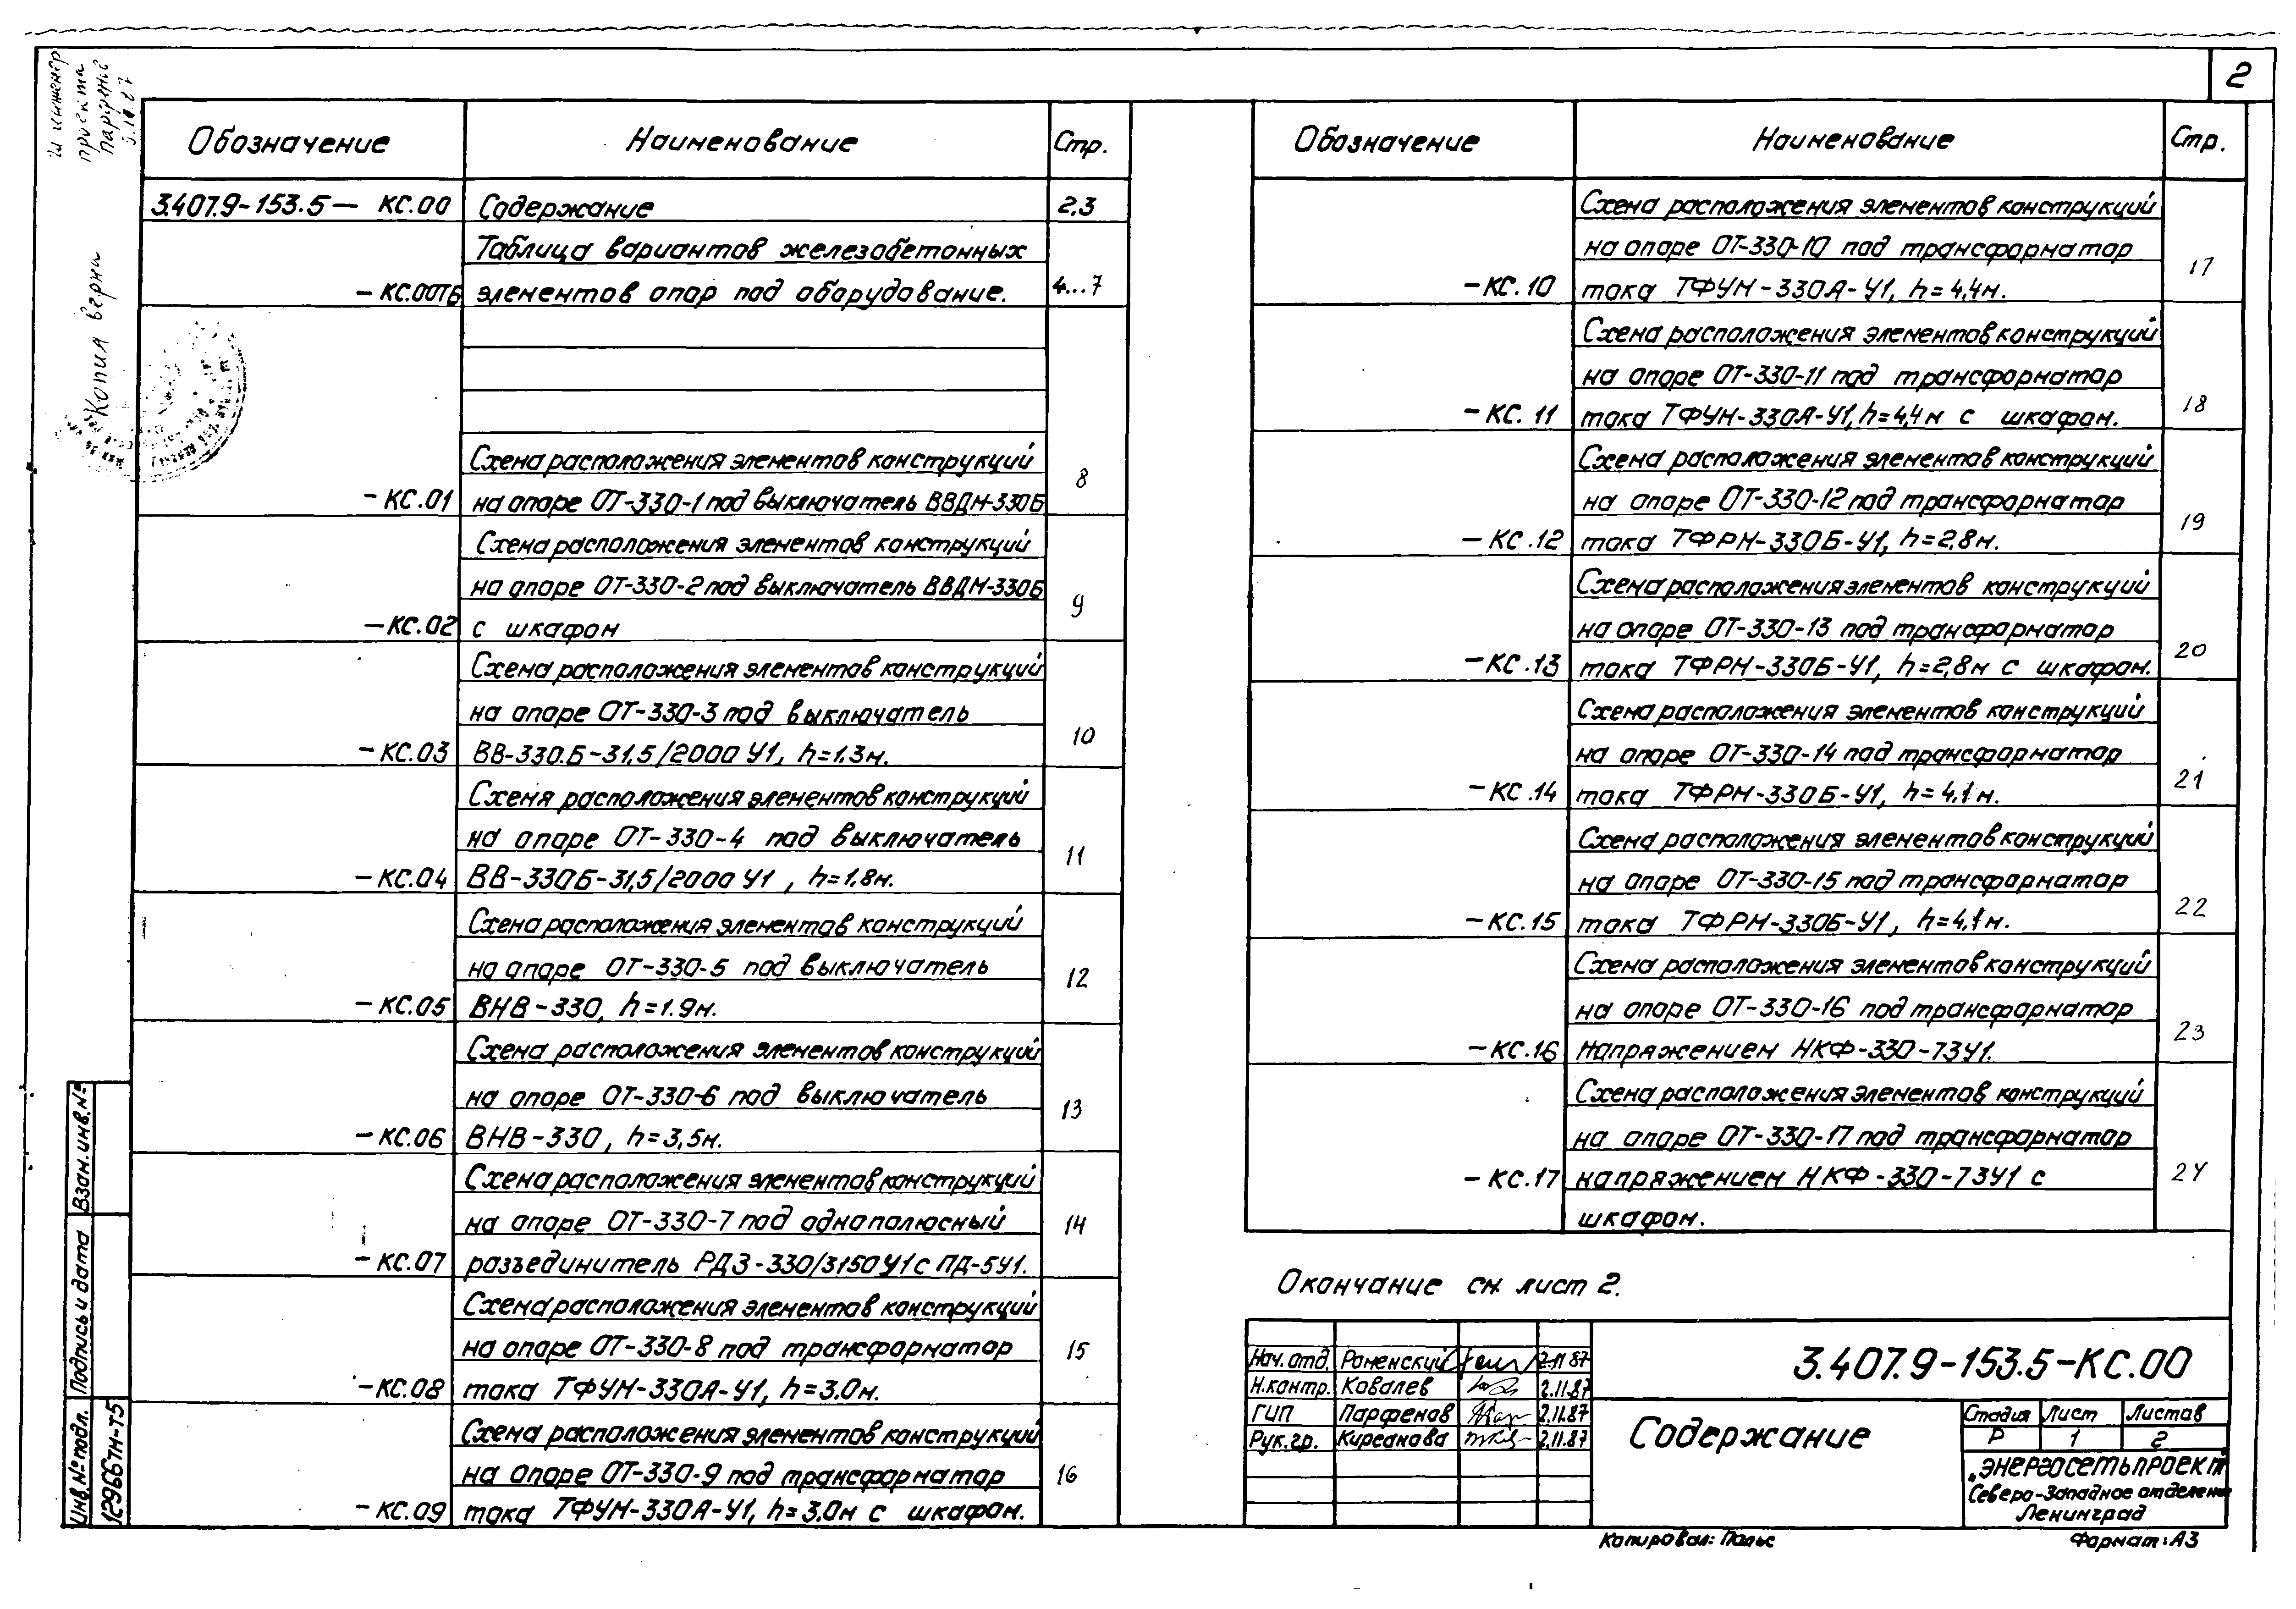 2
Гл инженер
проекта
Копия верна
Обозначение Наименование Стр.
3.407.9-153.5- КС.00 Содержание 2,3
Таблица вариантов железобетонных
-КС.00ТБ элементов опор под оборудование. 4...7
Схема расположения элементов конструкций
-КС.01 на опоре ОТ-330-1 под выключатель ВВДМ-330Б 8
Схема расположения элементов конструкций
на опоре ОТ-330-2 под выключатель ВВДМ-330Б
-КС.02 с шкафом 9
Схема расположения элементов конструкций
на опоре ОТ-330-3 под выключатель
-КС.03 ВВ-330.Б-31,5/2000 У1, h=1.3м. 10
Схемя расположения элементов конструкций
на опоре ОТ-330-4 под выключатель
-КС.04 ВВ-330Б-31,5/2000 У1, h=1.8м. 11
Схема расположения элементов конструкций
на опоре ОТ-330-5 под выключатель
-КС.05 ВНВ-330, h=1.9м. 12
Схема расположения элементов конструкций
на опоре ОТ-330-6 под выключатель
-КС.06 ВНВ-330, h=3,5м. 13
Схема расположения элементов конструкций
на опоре ОТ-330-7 под однополюсный
-КС.07 разъединитель РДЗ-330/3150У1 с ПД-5У1. 14
Схема расположения элементов конструкций
на опоре ОТ-330-8 под трансформатор
-КС.08 тока ТФУМ-330А-У1, h=3.0м. 15
Схема расположения элементов конструкций
на опоре ОТ-330-9 под трансформатор
-КС.09 тока ТФУМ-330А-У1, h=3.0м с шкафом. 16
Обозначение Наименование Стр.
Схема расположения элементов конструкций
на опоре ОТ-330-10 под трансформатор
-КС.10 тока ТФУМ-330А-У1, h=4,4м. 17
Схема расположения элементов конструкций
на опоре ОТ-330-11 под трансформатор
-КС.11 тока ТФУМ-330А-У1, h=4,4м с шкафом. 18
Схема расположения элементов конструкций
на опоре ОТ-330-12 под трансформатор
-КС.12 тока ТФРМ-330Б-У1, h=2,8м. 19
Схема расположения элементов конструкций
на опоре ОТ-330-13 под трансформатор
-КС.13 тока ТФРМ-330Б-У1, h=2,8м с шкафом. 20
Схема расположения элементов конструкций
на опоре ОТ-330-14 под трансформатор
-КС.14 тока ТФРМ-330Б-У1, h=4,1м. 21
Схема расположения элементов конструкций
на опоре ОТ-330-15 под трансформатор
-КС.15 тока ТФРМ-330Б-У1, h=4,1м. 22
Схема расположения элементов конструкций
на опоре ОТ-330-16 под трансформатор
-КС.16 Напряжением НКФ-330-73У1. 23
Схема расположения элементов конструкций
на опоре ОТ-330-17 под трансформатор
-КС.17 напряжением НКФ-330-73У1 с 24
шкафом.
Окончание см. лист 2.
Нач.отд. Роменский 2.11.87
Н.контр. Ковалев 2.11.87
ГИП Парфенов 2.11.87
Рук.гр. Кирсанова 2.11.87
3.407.9-153.5-КС.00
Содержание
Стадия Лист Листов
Р 1 2
"ЭНЕРГОСЕТЬПРОЕКТ"
Северо-Западное отделение
Ленинград
Копировал: Польс
Формат: А3
Взам.инв.№
Подпись и дата
Инв.№ подл.
12966тм-т5